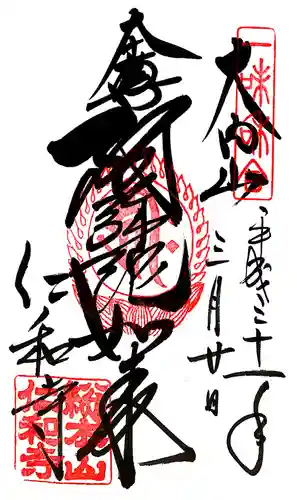 一味和合
大内山
平成三十一年
三月廿日
金堂
阿弥陀如来
仁和寺
総本山
仁和寺